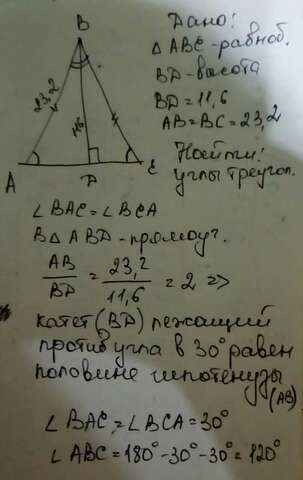 Дано:
△ABC - равноб.
BD - высота
BD = 11,6
AB = BC = 23,2
Найти:
углы треугол.
B
23,2
11,6
A
D
C
∠BAC = ∠BCA
В △ABD - прямоуг.
AB/BD = 23,2/11,6 = 2 =>
катет (BD) лежащий
против угла в 30° равен
половине гипотенузы
(AB)
∠BAC = ∠BCA = 30°
∠ABC = 180° - 30° - 30° = 120°